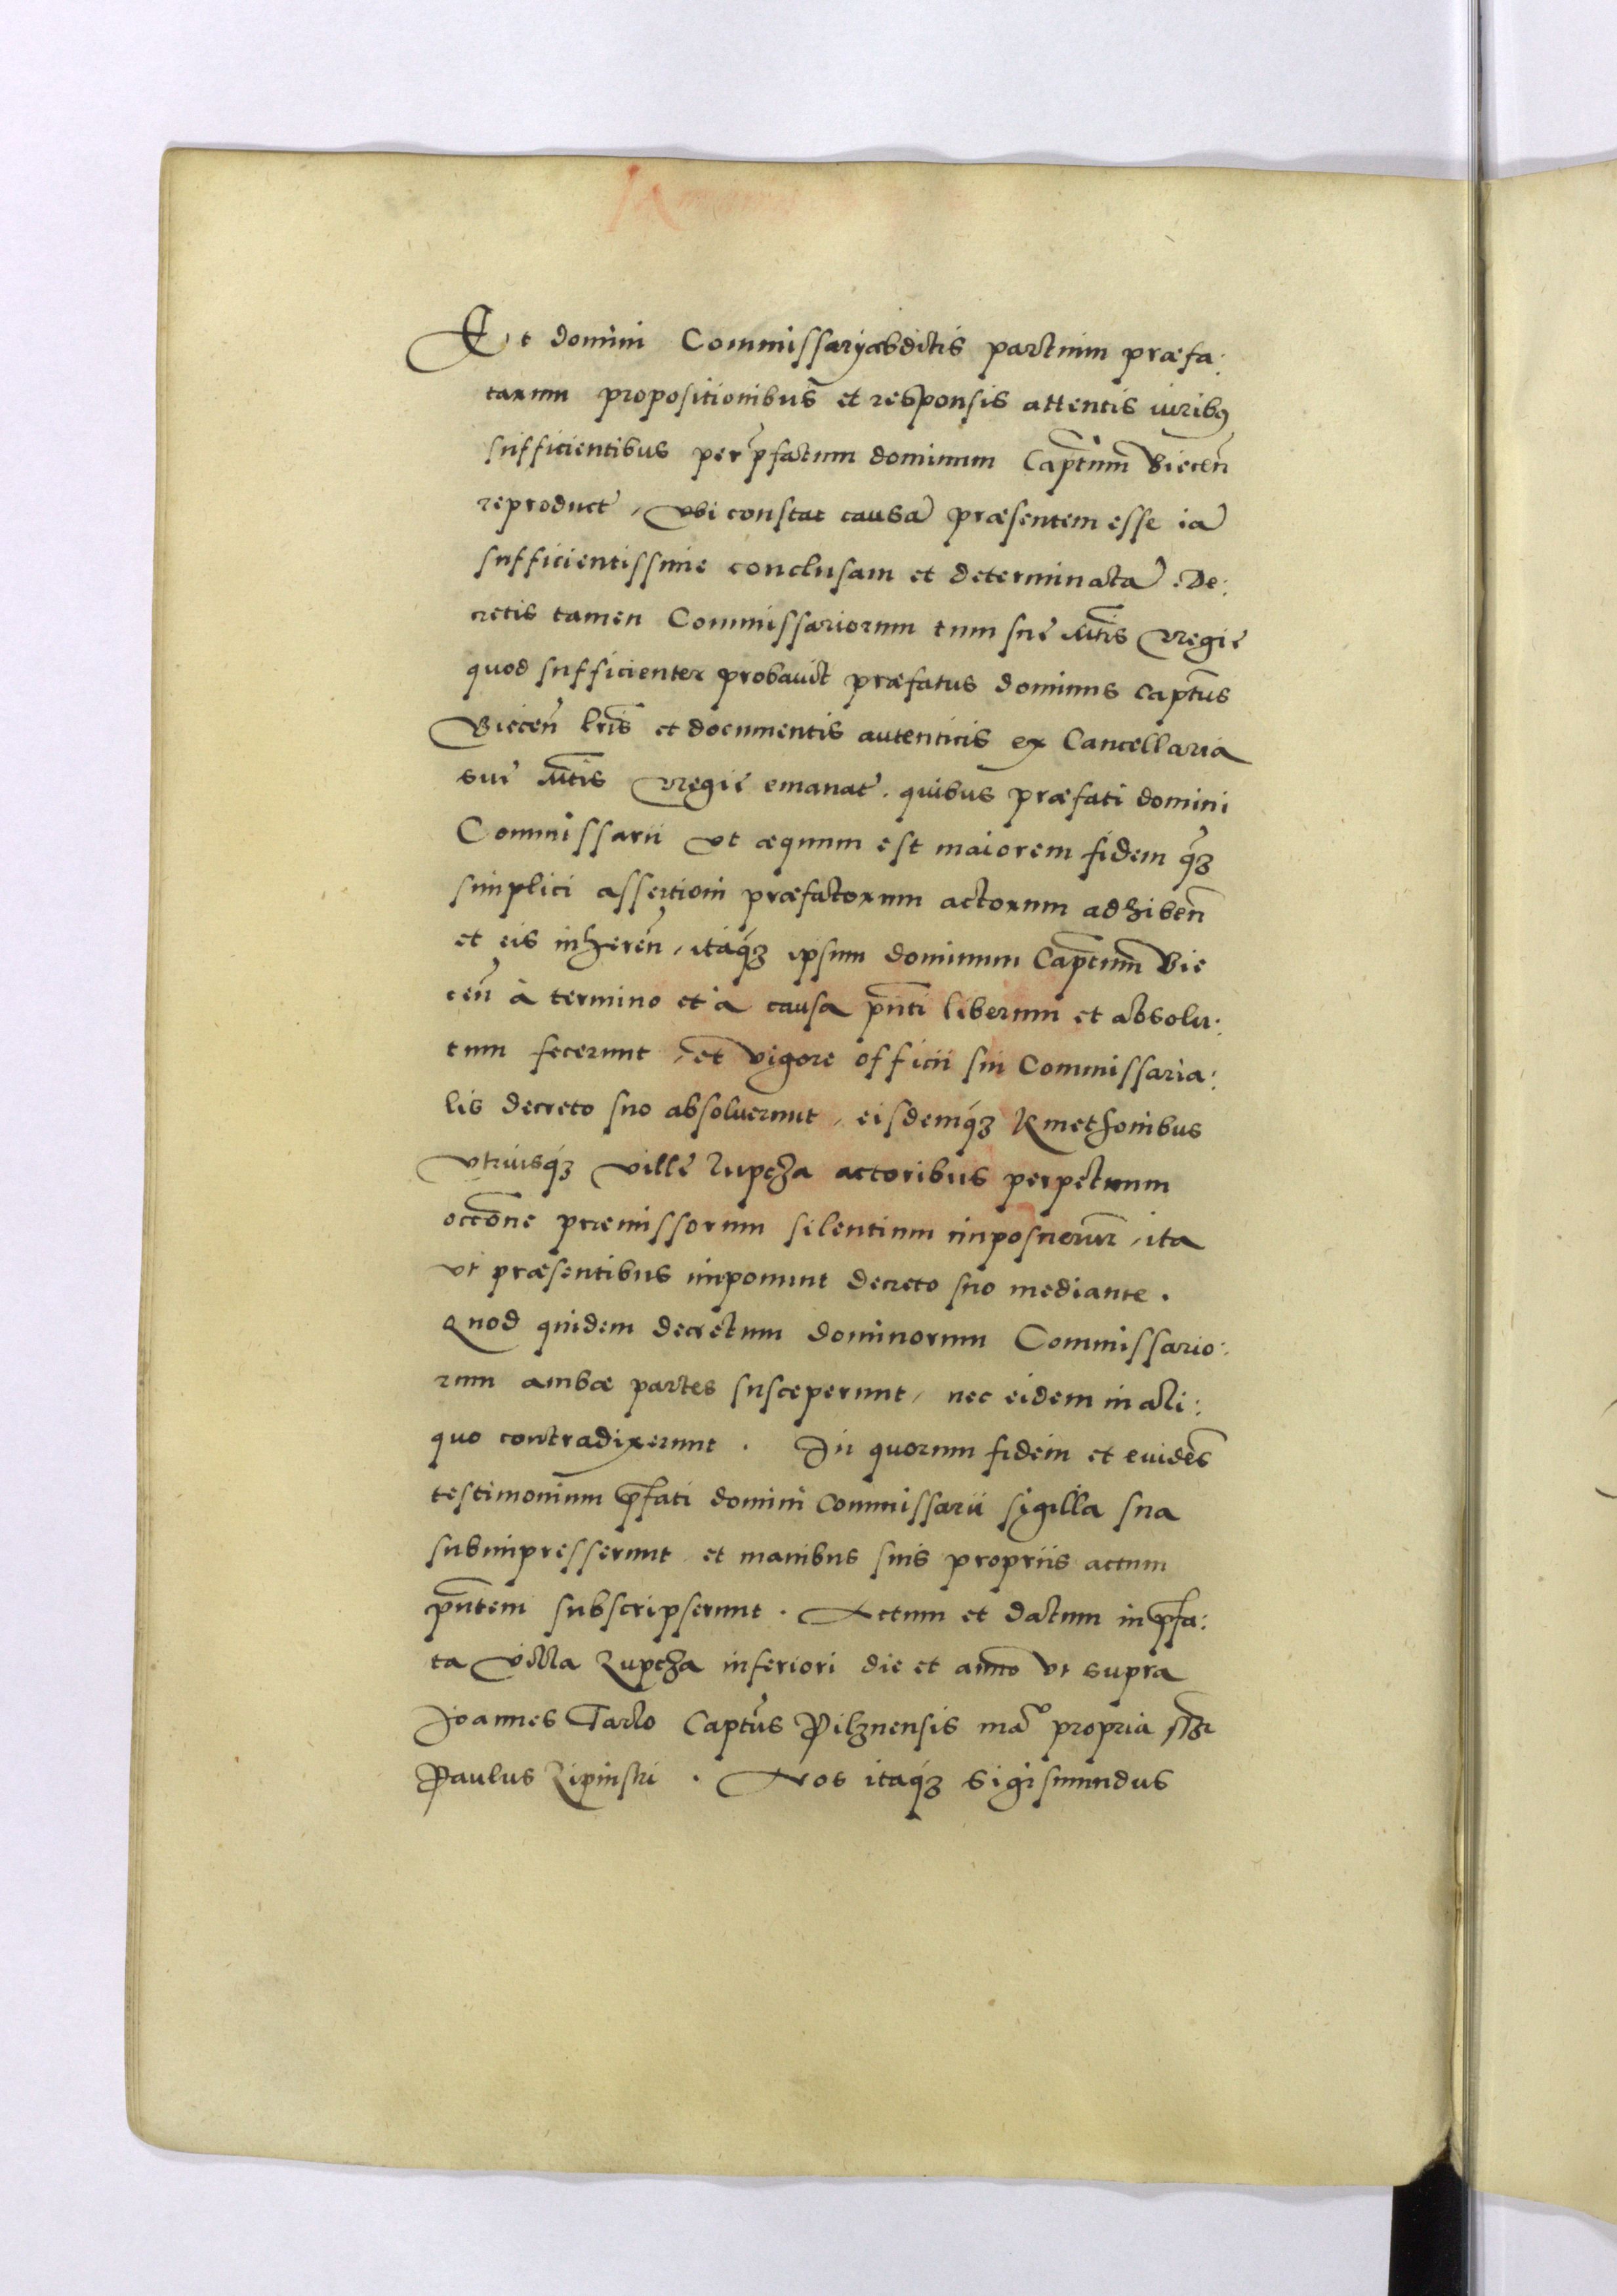 Et domini Commissarij abditis partium præfa:
tarum propositionibus et responsis attentis iuribus
sufficientibus per pfatum dominum Captum Biecen
reproduct, vbi constat causa præsentem esse ia
sufficientissime conclusam et determinata. De:
cretis tamen Commissariorum tum sue Mtis Regie
quod sufficienter probauit præfatus dominus Captus
Biecen lris et documentis autenticis ex Cancellaria
sue Mtis Regie emanat. quibus præfati domini
Commissarii vt æquum est maiorem fidem qz
simplici assertioni præfatorum actorum adhiben
et eis inheren, itaqz ipsum dominum Captum Bie
cen à termino et à causa pnti liberum et absolu:
tum fecerunt, et vigore officii sui Commissaria:
lis decreto suo absoluerunt, eisdemqz Kmethonibus
vtriusqz ville Lupcza actoribus perpetuum
occone præmissorum silentium imposuerunt, ita
vt præsentibus imponunt decreto suo mediante.
Quod quidem decretum dominorum Commissario:
rum ambæ partes susceperunt, nec eidem in ali:
quo contradixerunt. In quorum fidem et euides
testimonium pfati domini Commissarii sigilla sua
subimpresserunt et manibus suis propriis actum
pntem subscripserunt. Actum et datum in pfa:
ta villa Lupcza inferiori die et anno vt supra
Joannes Tarlo Captus Pilznensis ma propria sst
Paulus Lipinski. Nos itaqz Sigismundus